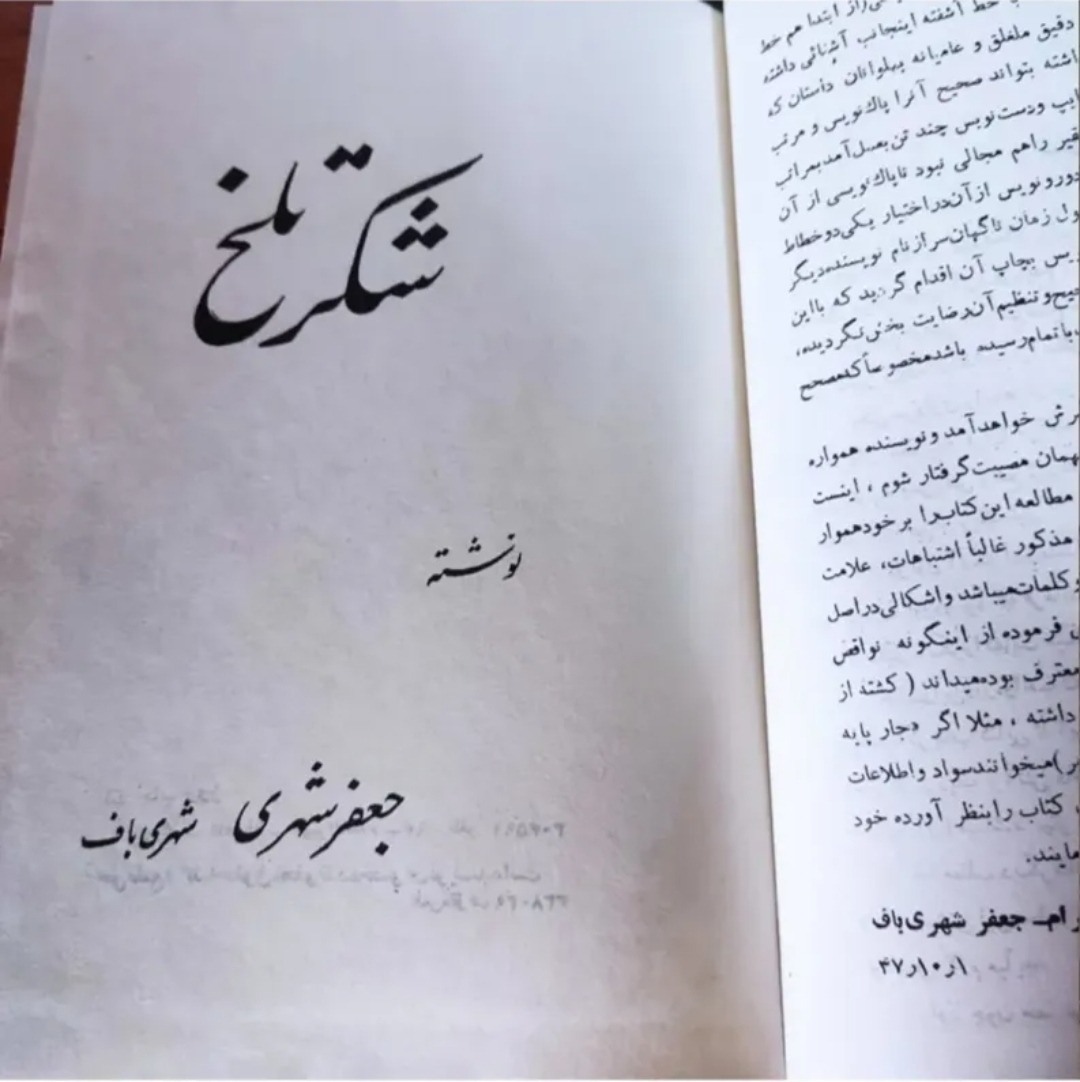 شکر تلخ
نوشته
جعفر شهری شهری باف
از ابتدا هم خط
خط آشفته اینجانب آشنائی داشته
دقیق ملغلق و عامیانه پهلوانان داستان که
اشته بتواند صحیح آنرا پاك نویس و مرتب
ایپ و دست نویس چند تن بعمل آمد بمراتب
قیر راهم مجالی نبود تا پاك نویسی از آن
دورو نویس از آن در اختیار یکی دو خطاط
ول زمان ناگهان سر از نام نویسنده دیگر
یس بچاپ آن اقدام گردید که با این
حیح و تنظیم آن رضایت بخش نگردیده،
باتمام رسیده باشد مخصوصاً که مصحح
رش خواهد آمد و نویسنده همواره
بهمان مصیبت گرفتار شوم ، اینست
مطالعه این کتاب را بر خود هموار
مذکور غالباً اشتباهات، علامت
و کلمات میباشد و اشکالی در اصل
فرموده از اینگونه نواقص
معترف بوده میداند ( کشته از
داشته ، مثلا اگر دچار پا به
ر) میخوانند سواد و اطلاعات
کتاب را بنظر آورده خود
مایند.
رام ــ جعفر شهری باف
۴۷ر۱۰ر۱